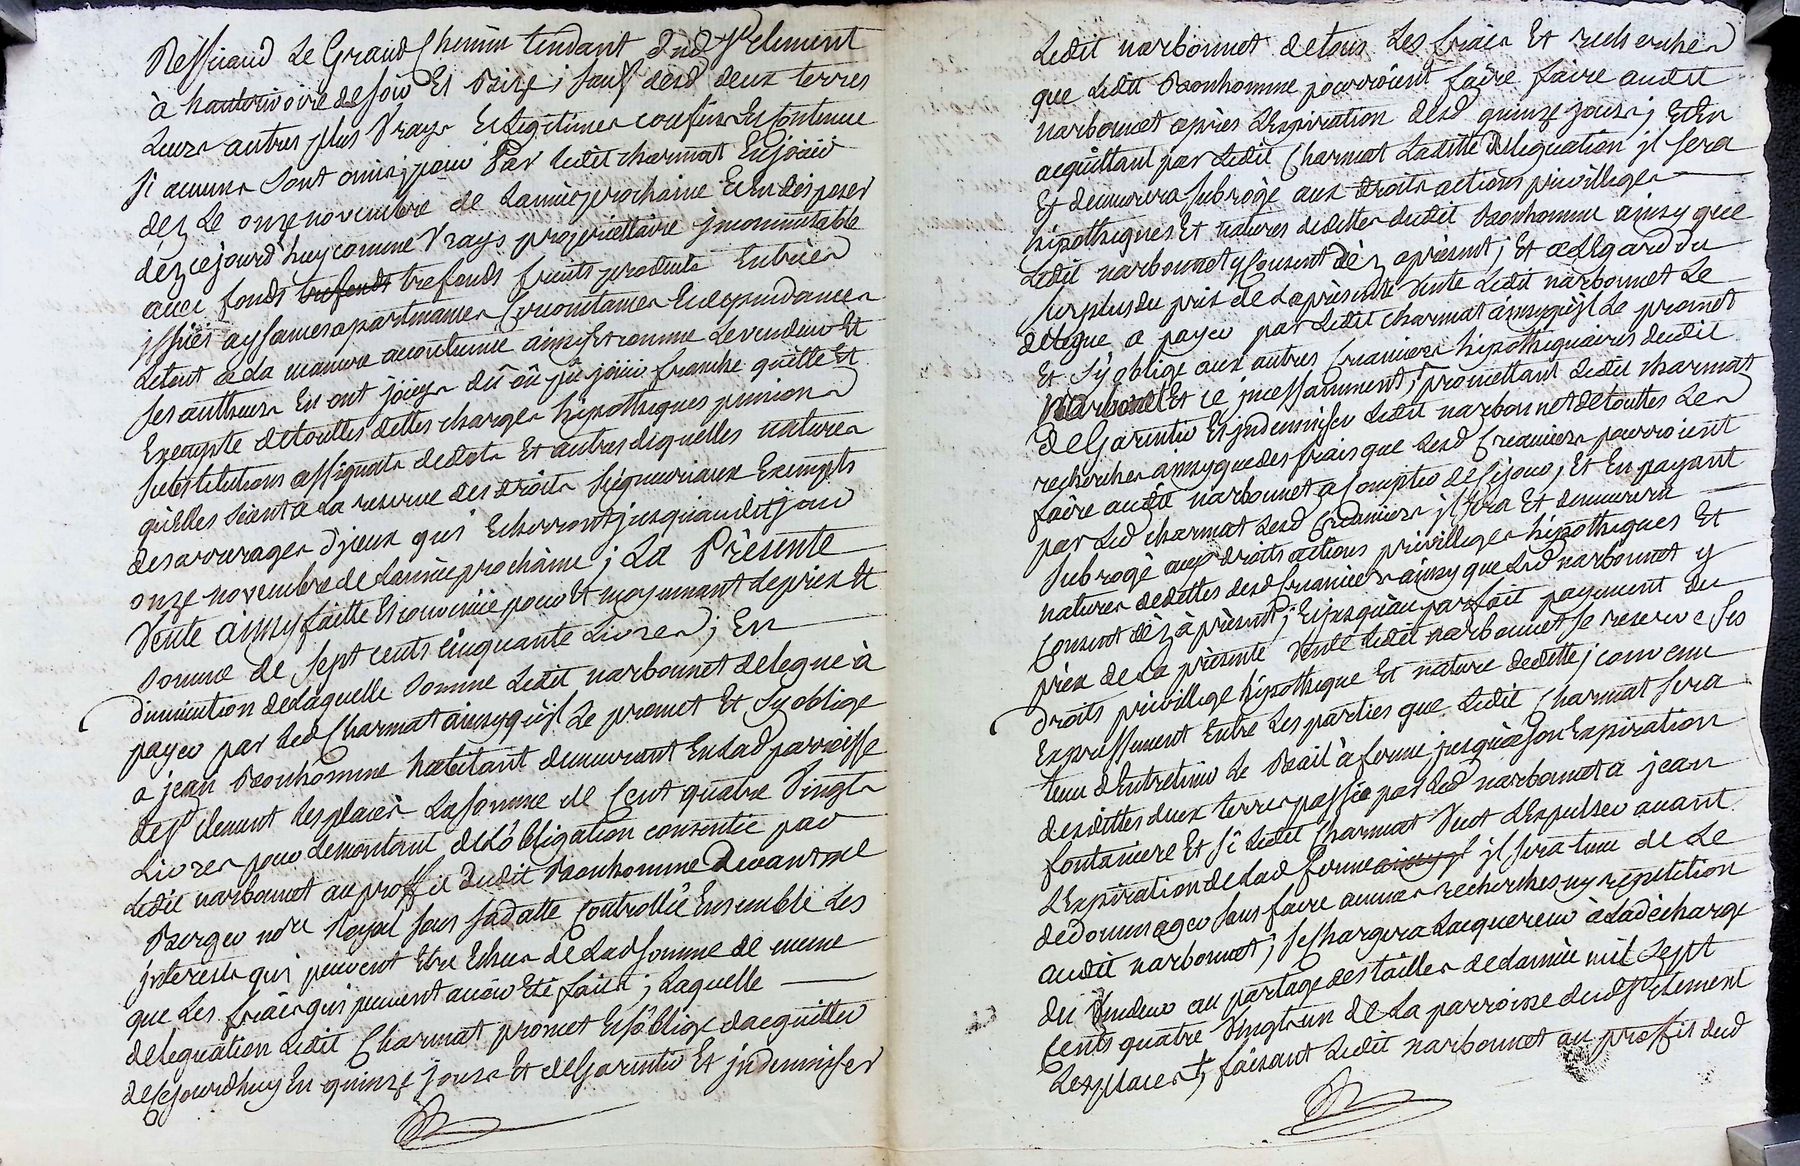 Ressicaud Le Grand Chemin tendant dud St Clement
à hauterivoire de soir Et bize; sauf desd deux terres
Leurs autres plus Vrays Et Legitimes confins Et contenue
si aucuns sont omis; pour Par ledit charmat En jouir
dez Le onze novembre de Lannée prochaine Et En disposer
déz cejourd'huy comme Vrays propriettaire jncommutable
avec fonds trefonds trefonds fruits produits Entrées
jssües aysances apartenances Circonstances Et dependances
Letout a La maniere accoutumée ainsy Et comme Le vendeur Et
ses autheurs En ont joüy dû ou pû joüir franche quitte Et
Exempte de touttes dettes charges hipothiques pensions
substitutions assignats de dots Et autres d'iquelles natures
qu'Elles soient a La reserve des droits seigneuriaux Exempts
des arrerages d'iceux qui Echerront jusqu'audit jour
onze novembre de Lannée prochaine; La Présente
Vente ainsy faitte Et convenüe pour Et moyennant le prix Et
somme de sept cents cinquante Livres; En
diminution de Laquelle somme Ledit narbonnet delegue à
payer par Led Charmat ainsy qu'il Le promet Et s'y oblige
a jean Bonhomme habitant demeurant En Lad parroisse
de St Clement Les places La somme de Cent quatre Vingts
Livres pour Le montant de L'obligation consentie par
Ledit narbonnet au proffit dudit Bonhomme Devant me
Berger nore Royal sous sa datte Controllée Ensemble Les
jnterests qui peuvent Etre Echus de Lad somme de meme
que Les frais qui peuvent avoir Eté faits; Laquelle
deleguation Ledit Charmat promet Et s'oblige d'acquitter
de Cejourdhuy En quinze jours Et de Garantir Et jndemniser
Ledit narbonnet de tous Les frais Et recherches
que Ledit Bonhomme pourroient faire faire audit
narbonnet après L'Expiration desd quinze jours; Et En
acquittant par Ledit Charmat Laditte deleguation jl sera
Et demeurera subrogé aux droits actions privilleges
hipothiques Et natures de dettes dudit Bonhomme ainsy que
Ledit narbonnet y Consent déz aprésent; Et a L'Egard du
surplus du prix de La présente Vente Ledit narbonnet Le
delegue a payer par Ledit charmat ainsy qu'il Le promet
Et s'y oblige aux autres Creanciers hipothiquaires dudit
Narbonet Et ce jncessamment; promettant Ledit charmat
de Garantir Et jndemniser Ledit narbonnet de touttes Les
recherches ainsy que des frais que Lesd Creanciers pourroient
faire audit narbonnet a Compter de Ce jour; Et En payant
par Led charmat Lesd Creanciers jl sera Et demeurera
subrogé aux droits actions privilleges hipothiques Et
natures de dettes desd Creanciers ainsy que Led narbonnet y
Consent déz aprésent; Et jusqu'au parfait payement du
prix de La présente Vente Ledit narbonnet se reserve ses
droits privillege hipothique Et nature de dette; convenu
Expressement Entre Les parties que Ledit Charmat sera
tenu d'Entretenir Le Bail à ferme jusqu'a son Expiration
desdittes deux terres passée par Led narbonnet a jean
fontaniere Et si Ledit Charmat Veut L'Expulser avant
L'Expiration de Lad ferme jl sera tenu de Le
dedommager sans faire aucunes recherches ny repetition
audit narbonnet; se Chargera Lacquereur à La décharge
du Vendeur au partage des tailles de Lannée mil sept
Cents quatre Vingt un de La parroisse dud St Clement
Les places †, faisant Ledit narbonnet au proffit dud